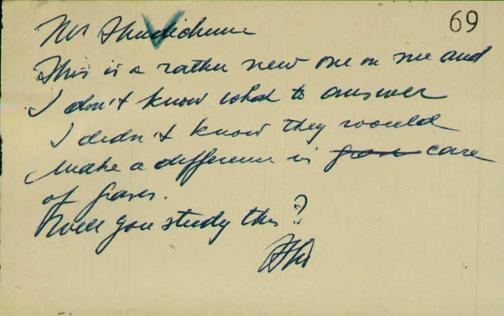 69
Mr
This is a rather new one on me and
I don't know what to answer
I didn't know they would
make a difference in care
of graves.
Will you study this?